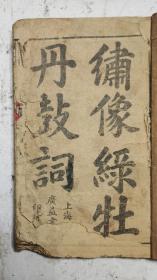 繡像綠牡
丹鼓詞
上海
廣益書
印行